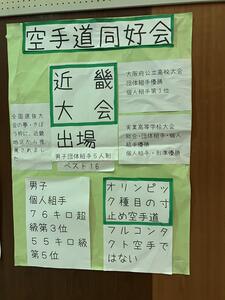 空手道同好会
近畿
大会
出場
男子団体組手5人制
ベスト16
大阪府公立高校大会
団体組手優勝
個人組手第3位
実業高等学校大会
総合・団体組手・個人
組手優勝
個人組手・形準優勝
男子
個人組手
76キロ超
級第3位
55キロ級
第5位
オリンピッ
ク種目の寸
止め空手道
フルコンタ
クト空手で
はない